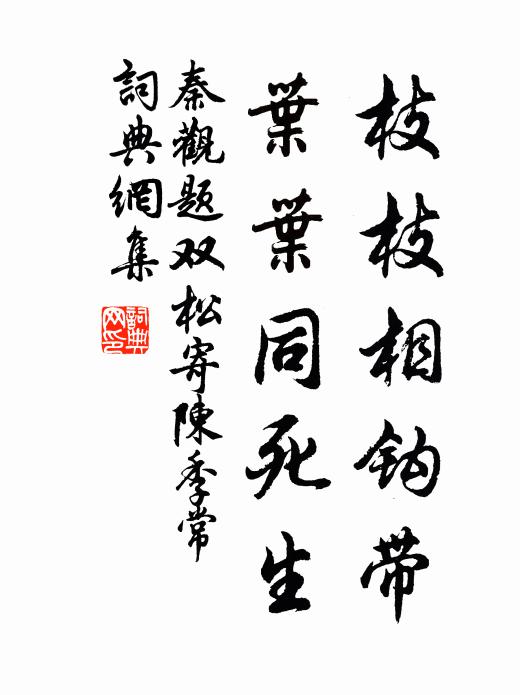 枝枝相鈎带
葉葉同死生
秦觀题双松寄陳季常
詞典網集
詞典網印